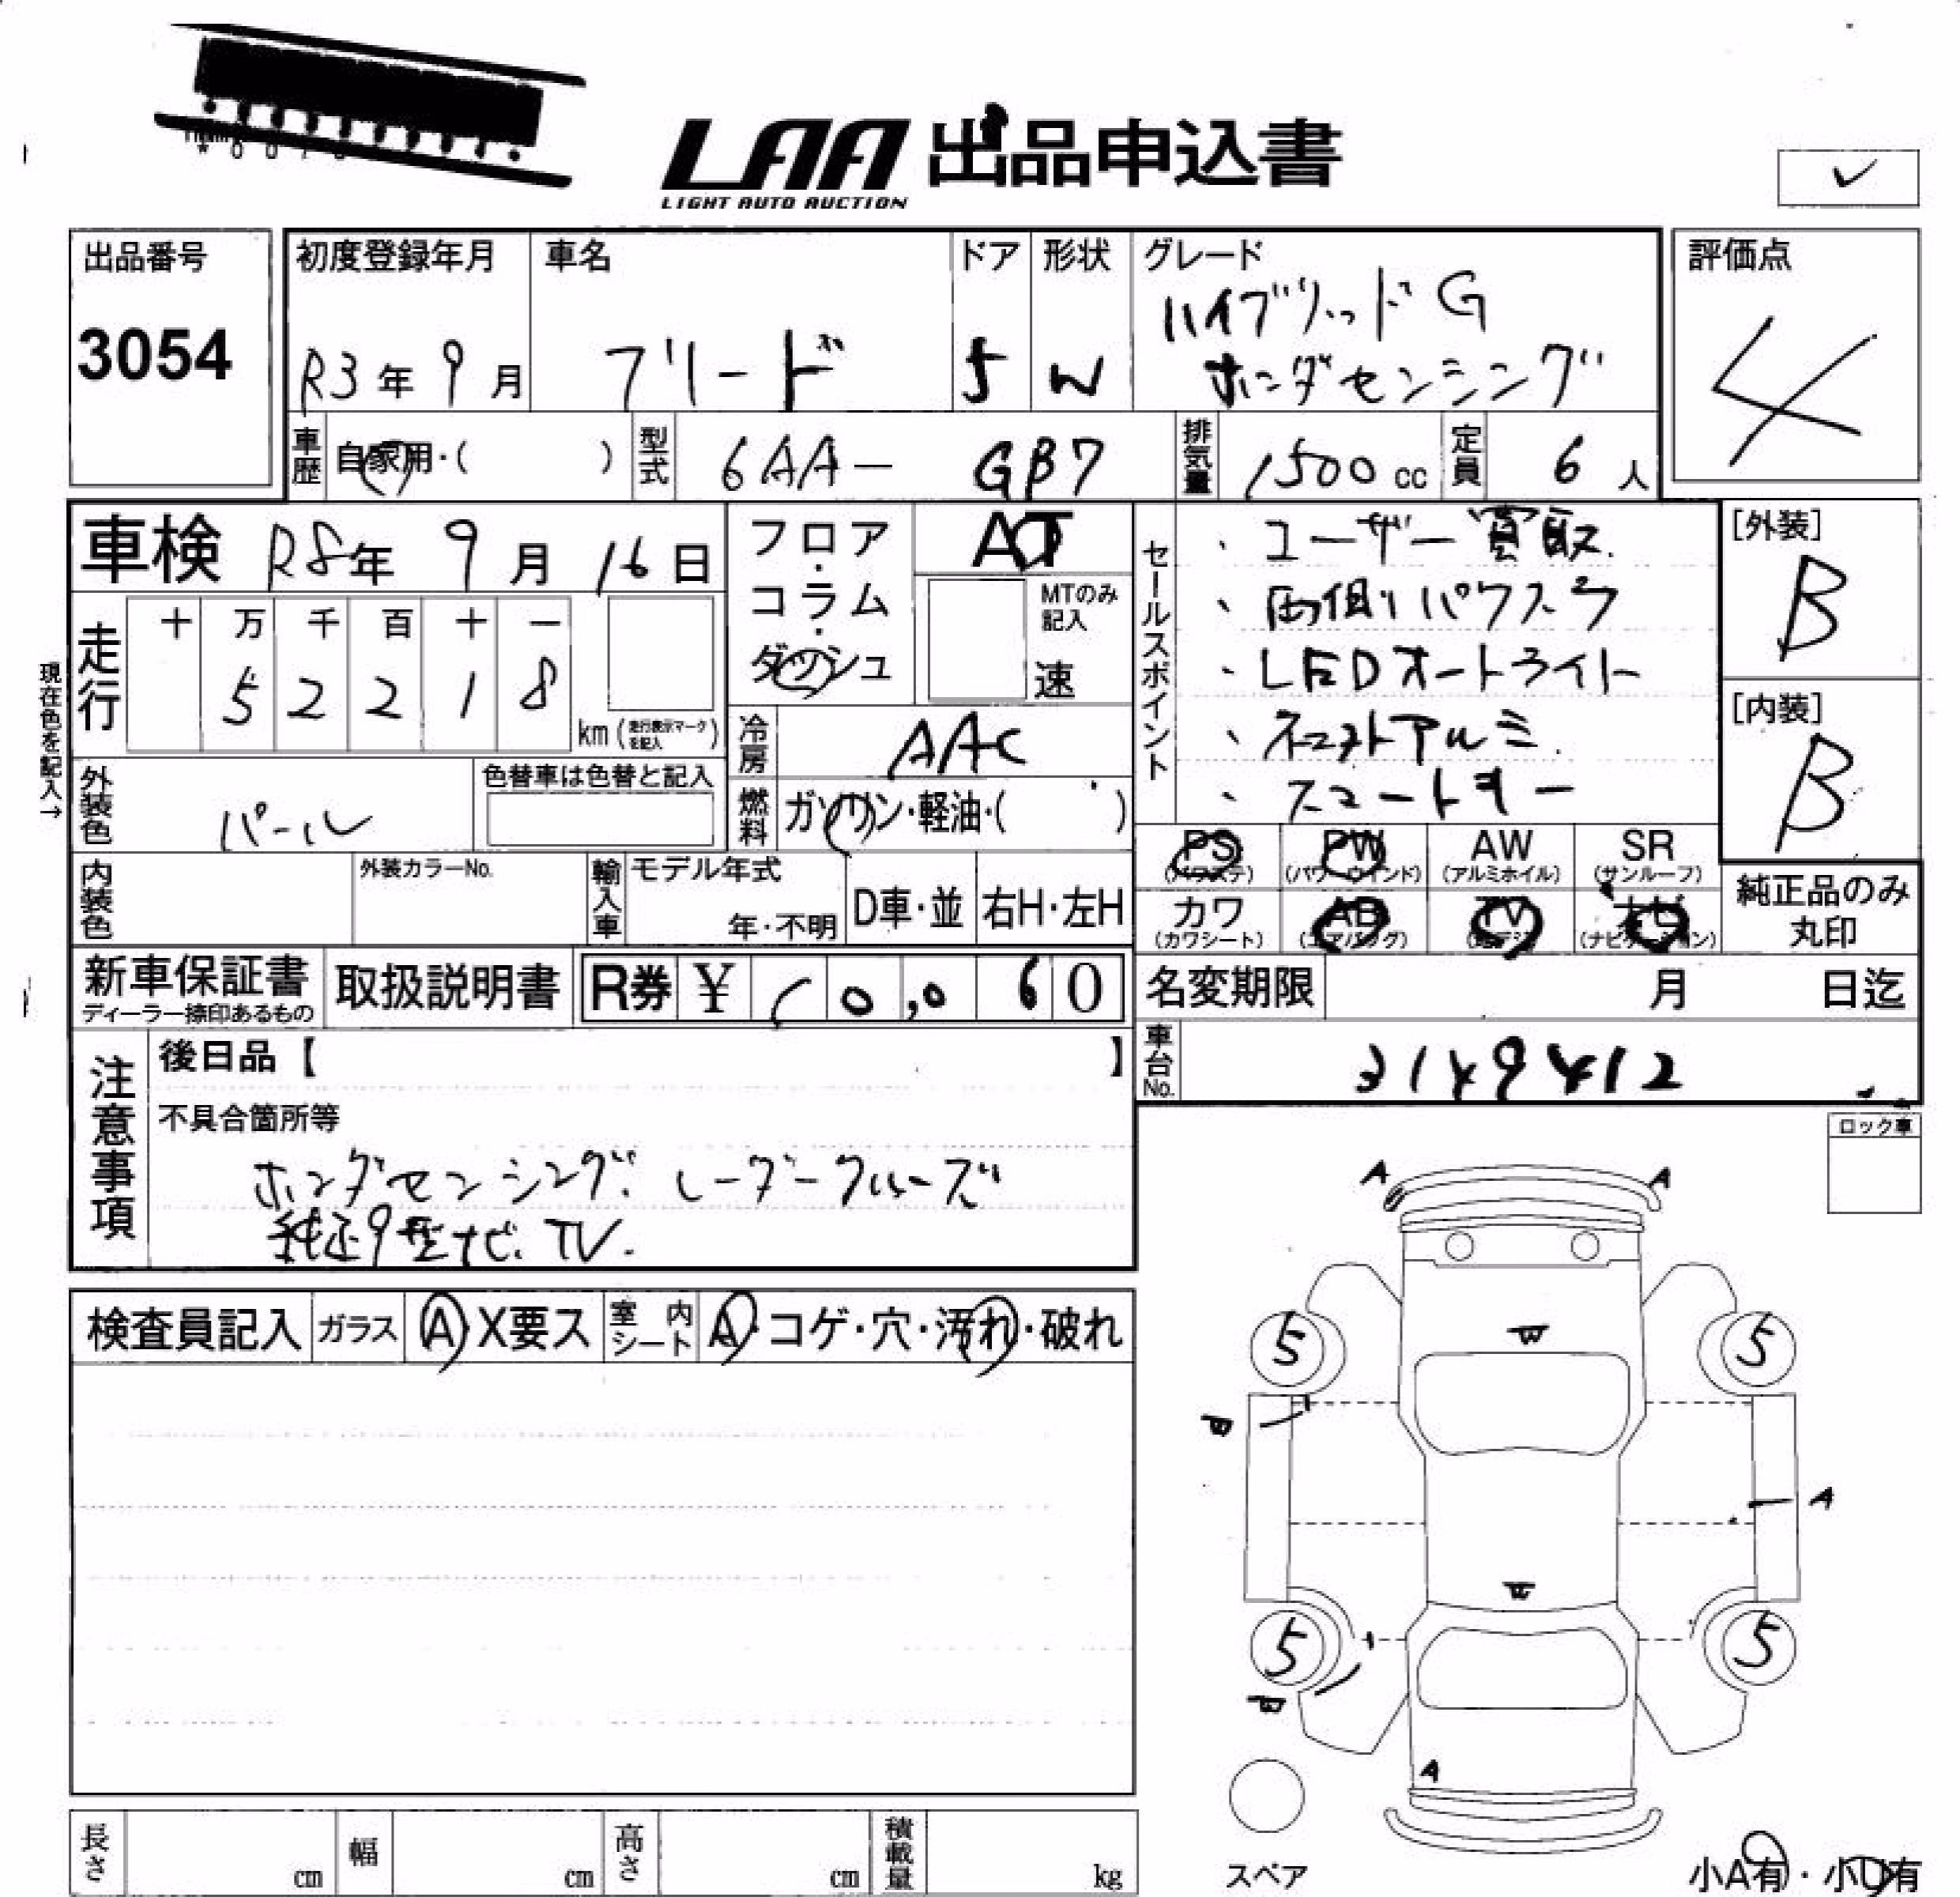 LAA 出品申込書
LIGHT AUTO AUCTION
✓
出品番号 3054
初度登録年月 R3年 9月
車名 フリード
ドア 5
形状 W
グレード ハイブリッドG
ホンダセンシング
評価点 4
車歴 自家用・( )
型式 6AA- GB7
排気量 1500 cc
定員 6 人
車検 R8年 9月 16日
フロア・コラム・ダッシュ
AT
MTのみ記入
速
セールスポイント
・ユーザー買取.
・両側パワスラ
・LEDオートライト
・ネクストアルミ.
・スマートキー
[外装] B
[内装] B
現在色を記入→
走行 十 万 千 百 十 一
5 2 2 1 8
km (走行表示マークを記入)
冷房 AAC
外装色 パール
色替車は色替と記入
燃料 ガソリン・軽油・( )
PS (パワステ)
PW (パワーウインド)
AW (アルミホイル)
SR (サンルーフ)
内装色
外装カラーNo.
輸入車 モデル年式 年・不明
D車・並
右H・左H
カワ (カワシート)
AB (エアバッグ)
TV
ナビ (ナビゲーション)
純正品のみ
丸印
新車保証書
ディーラー捺印あるもの
取扱説明書
R券 ¥ 1 0,0 6 0
名変期限 月 日迄
車台No. 3149412
注意事項
後日品【 】
不具合箇所等
ホンダセンシング. レーダークルーズ
純正9型ナビ. TV.
ロック車
A A
検査員記入 ガラス A・X要ス 室内シート A・コゲ・穴・汚れ・破れ
W
5 5
A
5 5
A
長さ cm 幅 cm 高さ cm 積載量 kg
スペア
小A有・小U有